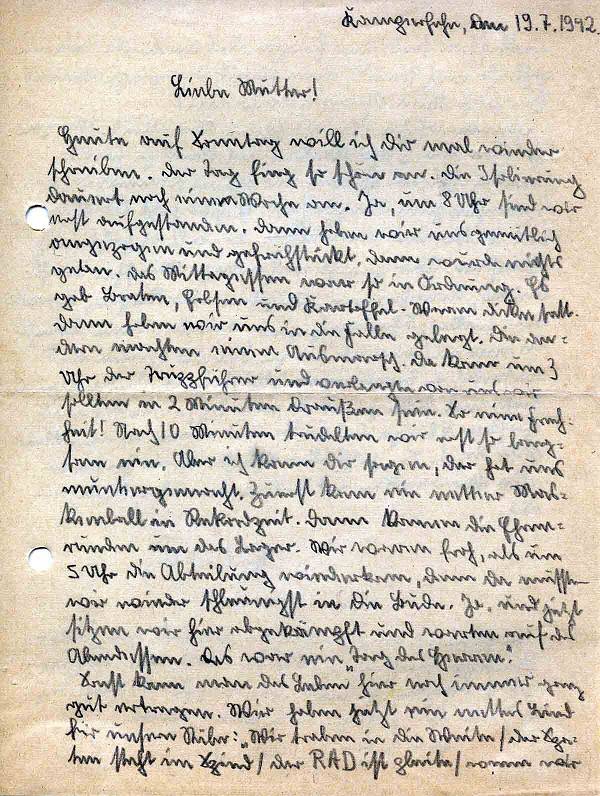 Kampserfehn, den 19.7.1942.
Liebe Mutter!
Heute auf Sonntag will ich Dir mal wieder
schreiben. Der Tag fing so schön an. Die Isolierung
dauert noch eine Woche an. Ja, um 8 Uhr sind wir
erst aufgestanden. Dann haben wir uns gemütlich
angezogen und gefrühstückt. Dann wurde nichts
getan. Das Mittagessen war so in Ordnung. Es
gab Braten, Erbsen und Kartoffel. Waren dicke satt.
Dann haben wir uns in die Falle gelegt. Die an-
dern machten einen Ausmarsch. Da kam um 3
Uhr der Truppführer und verlangte von uns wir
sollten in 2 Minuten draußen sein. So eine Frech-
heit! Nach 10 Minuten trudelten wir erst so lang-
sam ein. Aber ich kann Dir sagen, der hat uns
munter gemacht. Zuerst kam ein netter Mas-
kenball in Rekordzeit. Dann kamen die Ehren-
runden um das Lager. Wir waren froh, als um
5 Uhr die Abteilung wiederkam, denn da mußten
wir wieder schleunigst in die Bude. Ja, und jetzt
sitzen wir hier abgekämpft und warten auf das
Abendessen. Das war ein „Tag des Herrn“.
Sonst kann man das Leben hier noch immer ganz
gut ertragen. Wir haben jetzt ein nettes Lied
für unsere Stube: „Wir traben in die Weite / der Spa-
ten steht im Spind / der RAD ist pleite / wenn wir